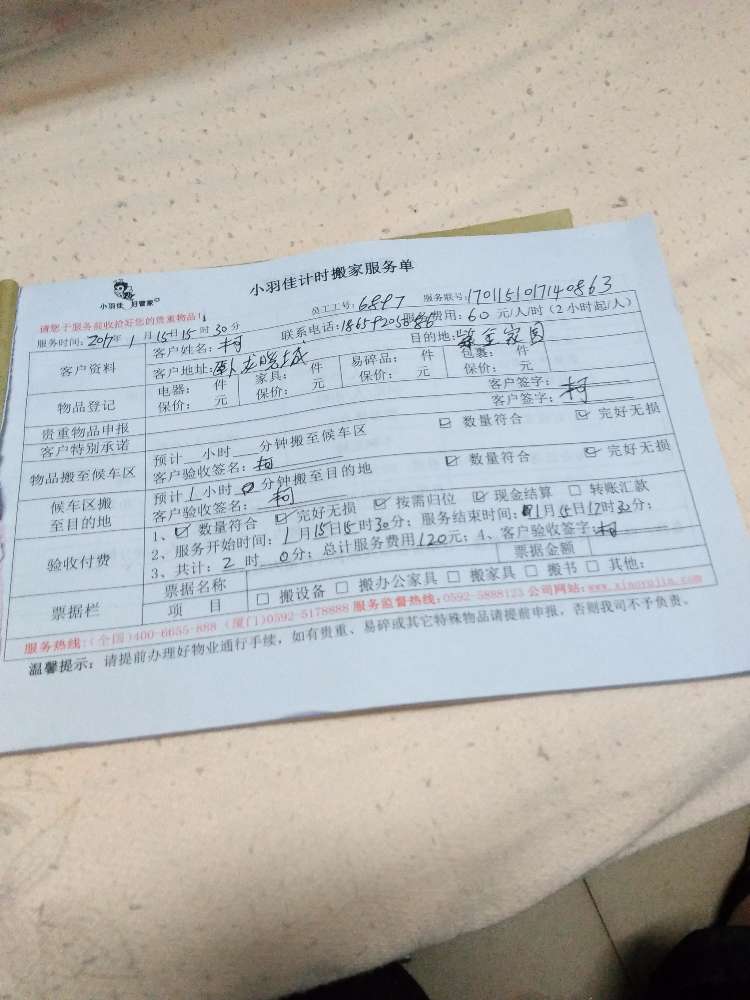 小羽佳计时搬家服务单
小羽佳 好管家
员工工号: 6897 服务联号: 170115101714086 3
请您于服务前收拾好您的贵重物品!
服务时间: 2017年 1 月 15日 15 时 30 分 联系电话: 服务费用: 60 元/人/时 (2小时起/人)
客户资料 客户姓名: 柯 目的地: 家园
客户地址: 卧龙晓城
物品登记 电器: 件 家具: 件 易碎品: 件 包裹: 件
保价: 元 保价: 元 保价: 元 保价: 元
贵重物品申报 客户签字:
客户特别承诺 客户签字: 柯
物品搬至候车区 预计 小时 分钟搬至候车区 ☑ 数量符合 ☑ 完好无损
客户验收签名: 柯
候车区搬至目的地 预计 1 小时 0 分钟搬至目的地 ☑ 数量符合 ☑ 完好无损
客户验收签名: 柯
验收付费 1、☑ 数量符合 ☑ 完好无损 ☑ 按需归位 ☑ 现金结算 □ 转账汇款
2、服务开始时间: 1 月 15 日 15 时 30 分; 服务结束时间: 1 月 15 日 17 时 30 分;
3、共计: 2 时 0 分; 总计服务费用 120 元; 4、客户验收签字: 柯
票据栏 票据名称 票据金额
项 目 □ 搬设备 □ 搬办公家具 □ 搬家具 □ 搬书 □ 其他:
服务热线: (全国)400-6655-888 (厦门)0592-5178888 服务监督热线: 0592-5888123 公司网站: www.xiaoyujia.com
温馨提示: 请提前办理好物业通行手续, 如有贵重、易碎或其它特殊物品请提前申报, 否则我司不予负责。